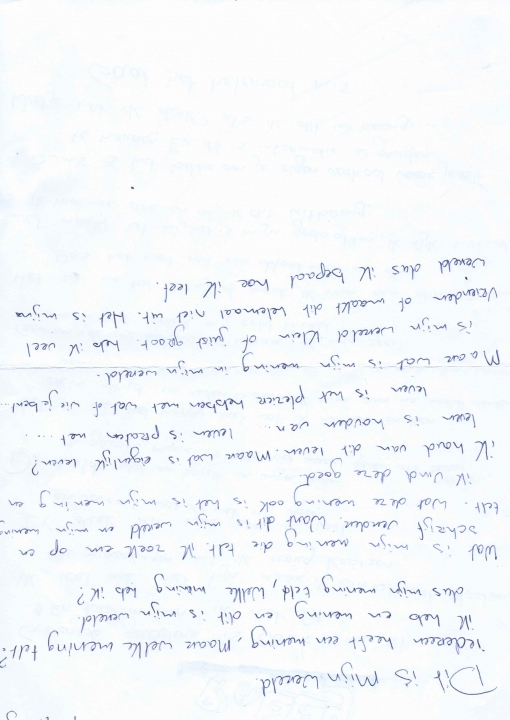 Dit is mijn wereld.
iedereen heeft een mening, maar welke mening telt?
ik heb en mening en dit is mijn wereld
dus mijn mening teld, welke mening heb ik?
Wat is mijn mening die telt. ik zoek em op en
schrijf verder. Want dit is mijn wereld en mijn mening
telt. Wat deze mening ook is het is mijn mening en
ik vind deze goed.
ik houd van dit leven. Maar wat is eigenlijk leven?
leven is houden van.. leven is praten met ....
leven is het plezier hebben met wat of wie je bent..
Maar wat is mijn mening in mijn wereld.
is mijn wereld klein of juist groot. heb ik veel
vrienden of maakt dit helemaal niet uit. Het is mijn
wereld dus ik bepaal hoe ik leef.